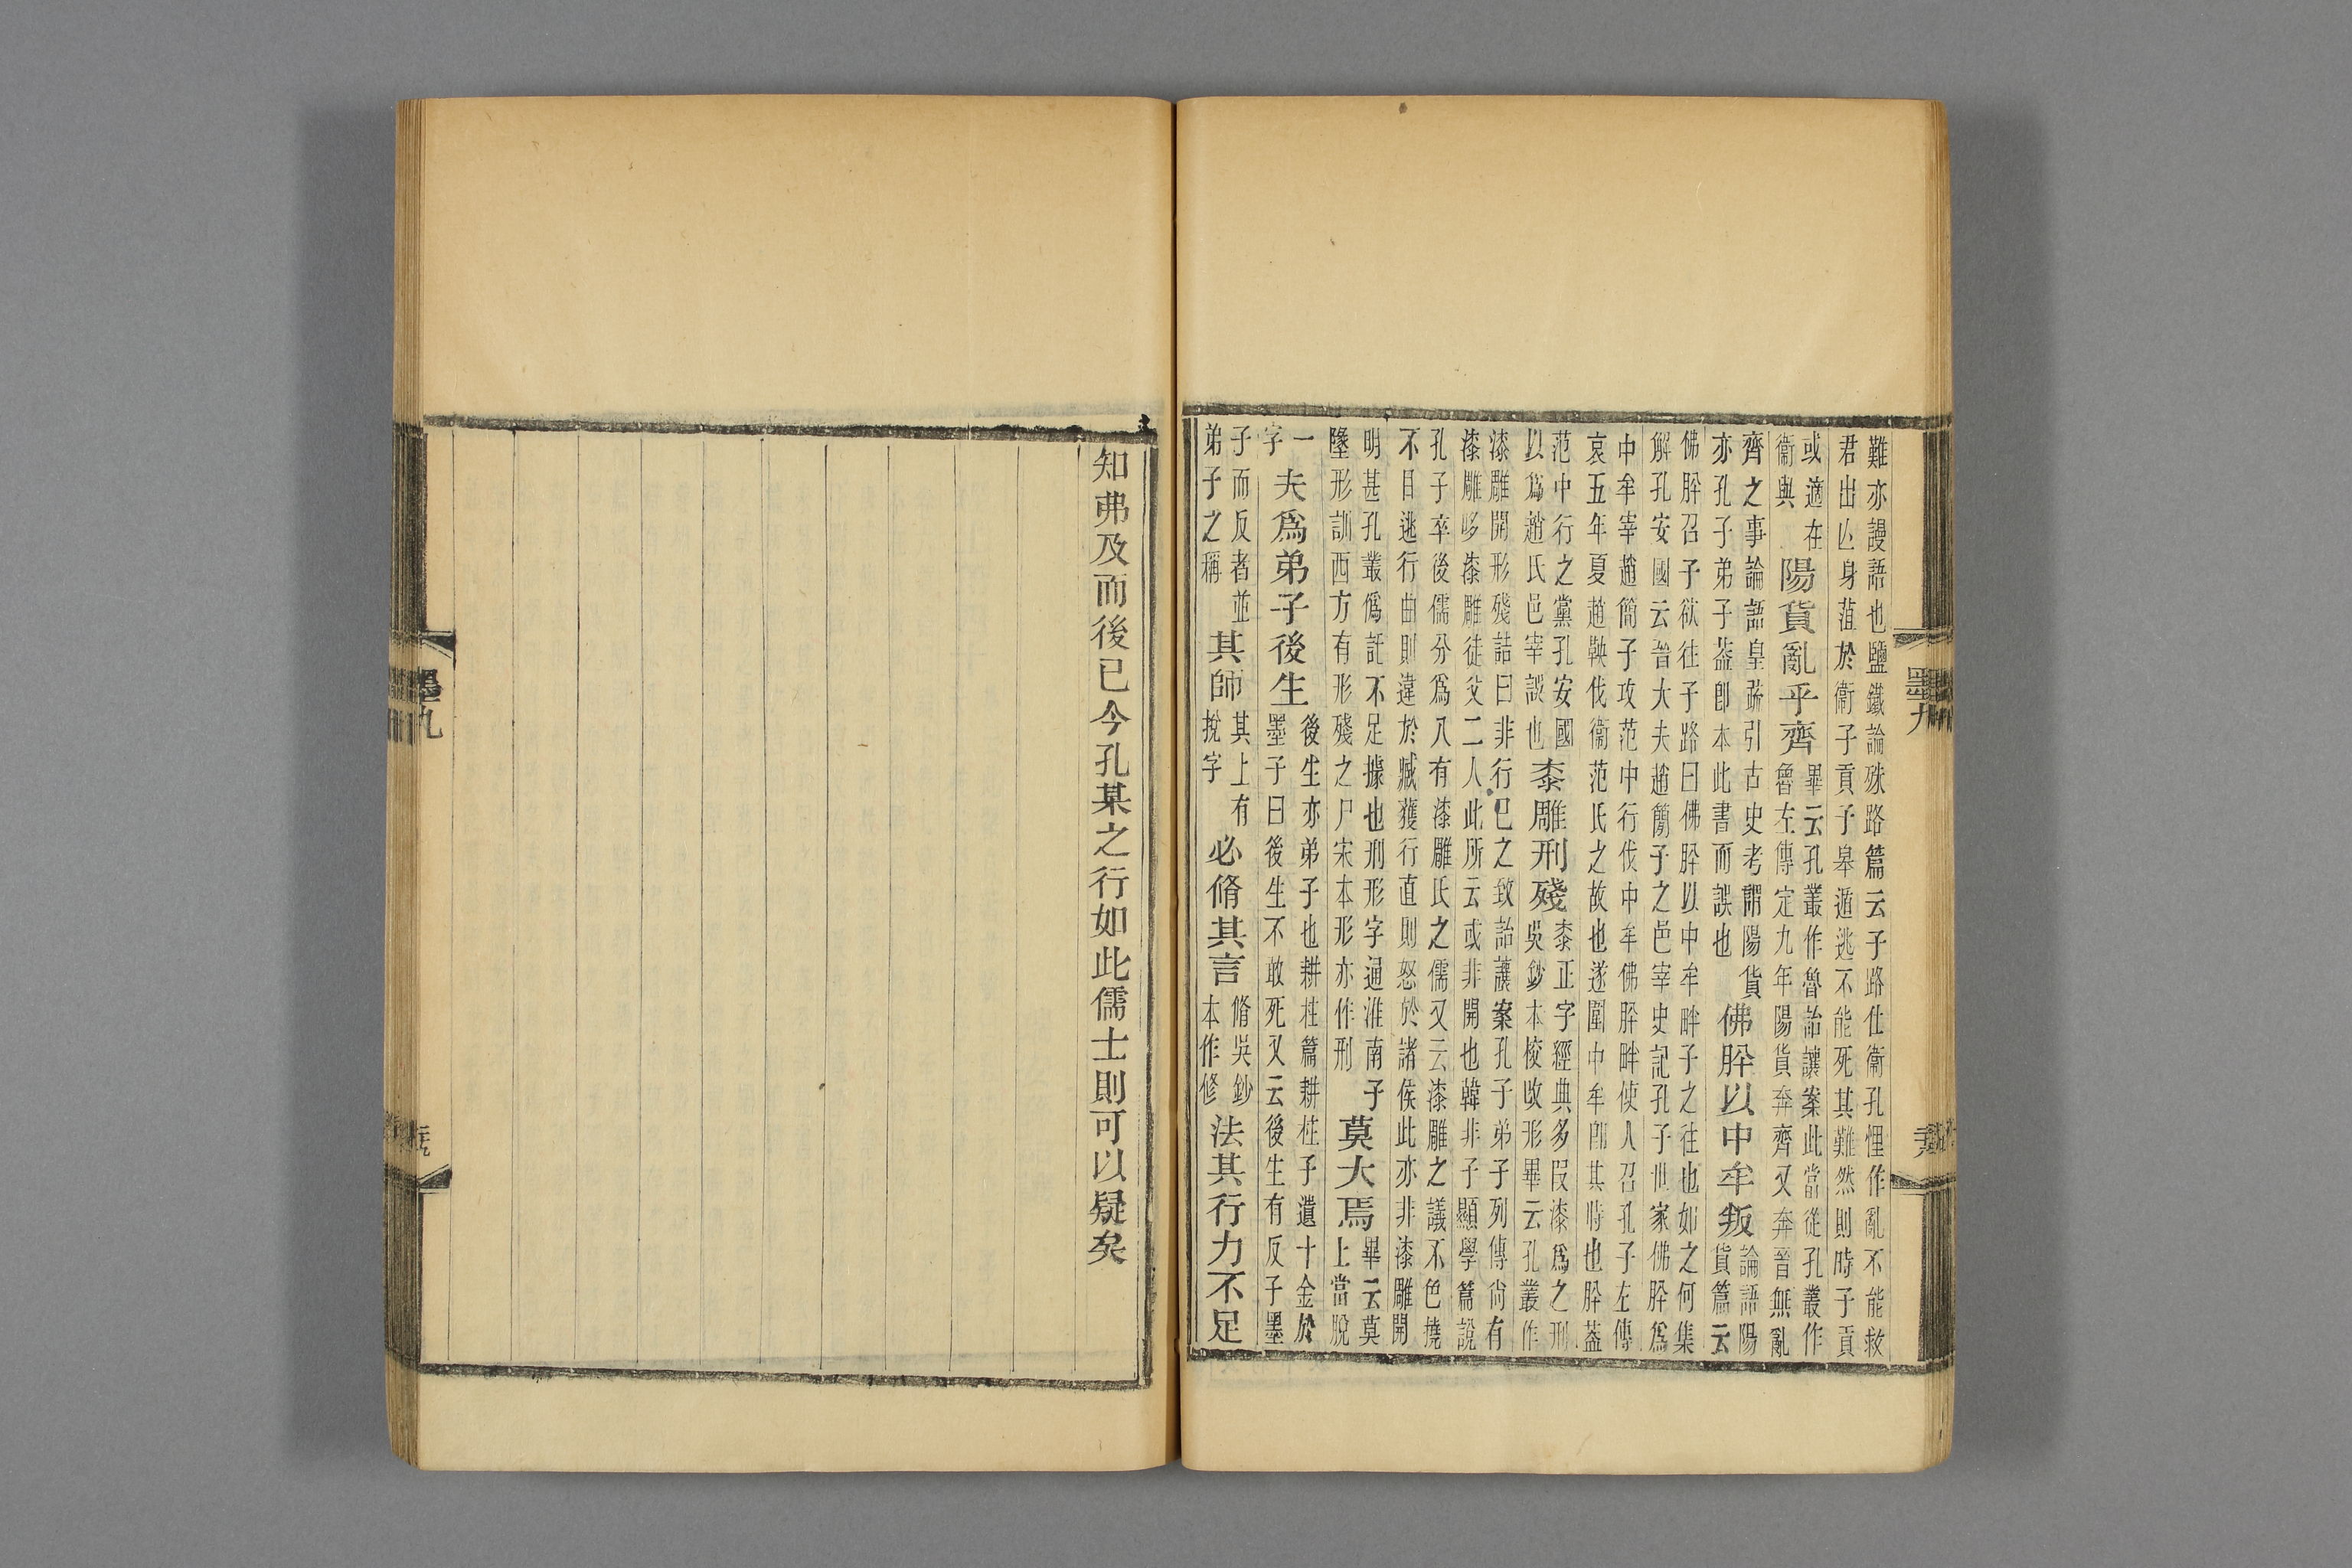 難亦謾語也鹽鐵論殊路篇云子路仕衞孔悝作亂不能救
君出亾身菹於衞子貢子皋遁逃不能死其難然則時子貢
或適在
衞與
陽貨亂乎齊
畢云孔叢作魯詒讓案此當從孔叢作
魯左傳定九年陽貨奔齊又奔晉無亂
齊之事論語皇疏引古史考謂陽貨
亦孔子弟子葢卽本此書而誤也
佛肸以中牟叛
論語陽
貨篇云
佛肸召子欲往子路曰佛肸以中牟畔子之往也如之何集
解孔安國云晉大夫趙簡子之邑宰史記孔子世家佛肸爲
中牟宰趙簡子攻范中行伐中牟佛肸畔使人召孔子左傳
哀五年夏趙鞅伐衞范氏之故也遂圍中牟卽其時也肸葢
范中行之黨孔安國
以爲趙氏邑宰誤也
桼雕刑殘
桼正字經典多叚漆爲之刑
吳鈔本校改形畢云孔叢作
漆雕開形殘詰曰非行己之致詒讓案孔子弟子列傳尙有
漆雕哆漆雕徒父二人此所云或非開也韓非子顯學篇說
孔子卒後儒分爲八有漆雕氏之儒又云漆雕之議不色撓
不目逃行曲則違於臧獲行直則怒於諸侯此亦非漆雕開
明甚孔叢僞託不足據也刑形字通淮南子
墬形訓西方有形殘之尸宋本形亦作刑
莫大焉
畢云莫
上當脫
一
字
夫爲弟子後生
後生亦弟子也耕柱篇耕柱子遺十金於
墨子曰後生不敢死又云後生有反子墨
子而反者並
弟子之稱
其師
其上有
挩字
必脩其言
脩吳鈔
本作修
法其行力不足
知弗及而後已今孔某之行如此儒士則可以疑矣
墨九
墨九